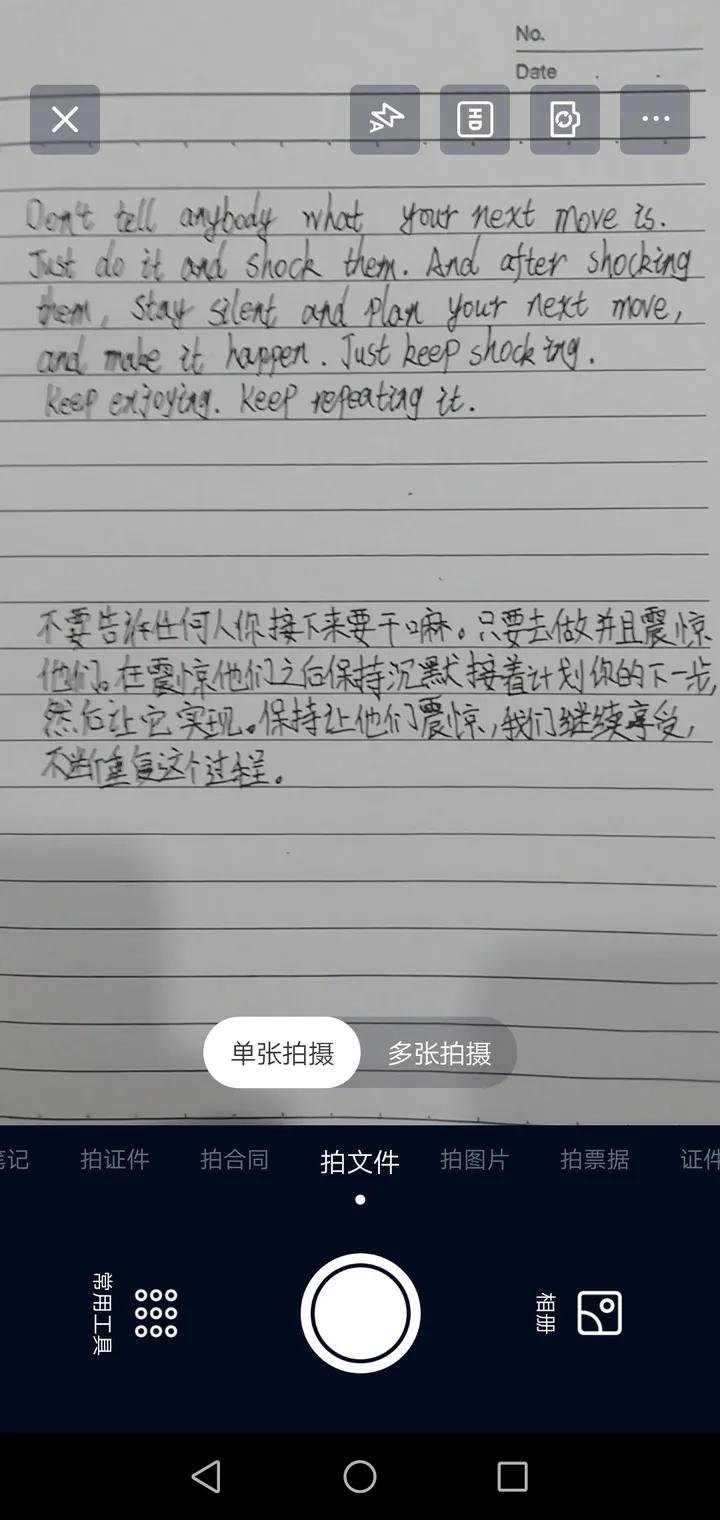 No.
Date
Don't tell anybody what your next move is.
Just do it and shock them. And after shocking
them, stay silent and plan your next move,
and make it happen. Just keep shocking.
Keep enjoying. Keep repeating it.
不要告诉任何人你接下来要干嘛。只要去做并且震惊
他们。在震惊他们之后保持沉默接着计划你的下一步,
然后让它实现。保持让他们震惊,我们继续享受,
不断重复这个过程。
单张拍摄 多张拍摄
笔记 拍证件 拍合同 拍文件 拍图片 拍票据 证件
常用工具 相册
A
HD